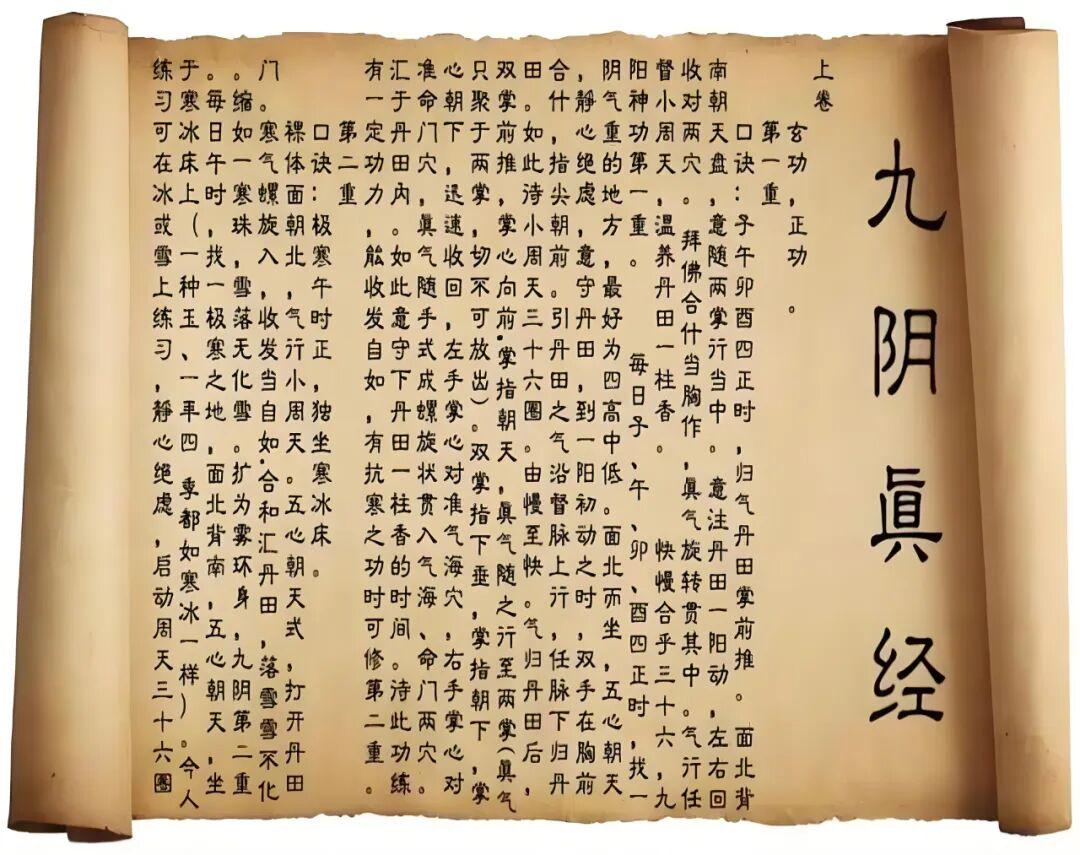 九阴眞经
上卷
玄功,正功。
第一重
口诀:子午卯酉四正时,归气丹田掌前推。面北背
南朝天盘,意随两掌行当中。意注丹田一阳动,左右回
收对两穴。拜佛合什当胸作,眞气旋转贯其中。气行任
督小周天,温养丹田一柱香。快慢合乎三十六,九
阳神功第一重。每日子、午、卯、酉四正时,找一
阴气重的地方,最好为四高中低。面北而坐,五心朝天
,静心绝虑,意守丹田,到一阳初动之时,双手在胸前
合什,指尖朝前。引丹田之气沿督脉上行,任脉下归丹
田。如此待小周天三十六圈。由慢至快。气归丹田后,
双掌前推,掌心向前.掌指朝天,眞气随之行至两掌(眞气
只聚于两掌,切不可放出)。双掌指下垂,掌指朝下,掌
心朝下,迅速收回,左手掌心对准气海穴,右手掌心对
准命门穴,眞气随手式成螺旋状贯入气海、命门两穴。
汇于丹田内。如此意守下丹田一柱香的时间。待此功练
有一定功力,能收发自如,有抗寒之功时可修第二重。
第二重
口诀:极寒午时正,独坐寒冰床。
裸体面朝北,气行小周天。五心朝天式,打开丹田
门。寒气螺旋入,收发当自如.合和汇丹田,落雪雪不化
。缩如一寒珠,雪落无化雪。扩为雾环身,九阴第二重
。每日午时,找一极寒之地,面北背南,五心朝天,坐
于寒冰床上(一种玉、一年四季都如寒冰一样)。今人
练习可在冰或雪上练习,静心绝虑,启动周天三十六圈